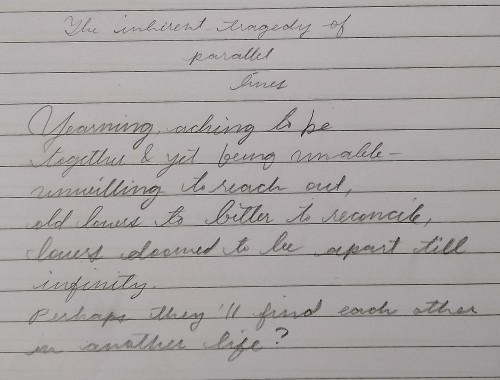 The inherent tragedy of
parallel
lines
Yearning, aching to be
together & yet being unable-
unwilling to reach out,
old lovers to bitter to reconcile,
lovers doomed to be apart till
infinity.
Perhaps they'll find each other
in another life?